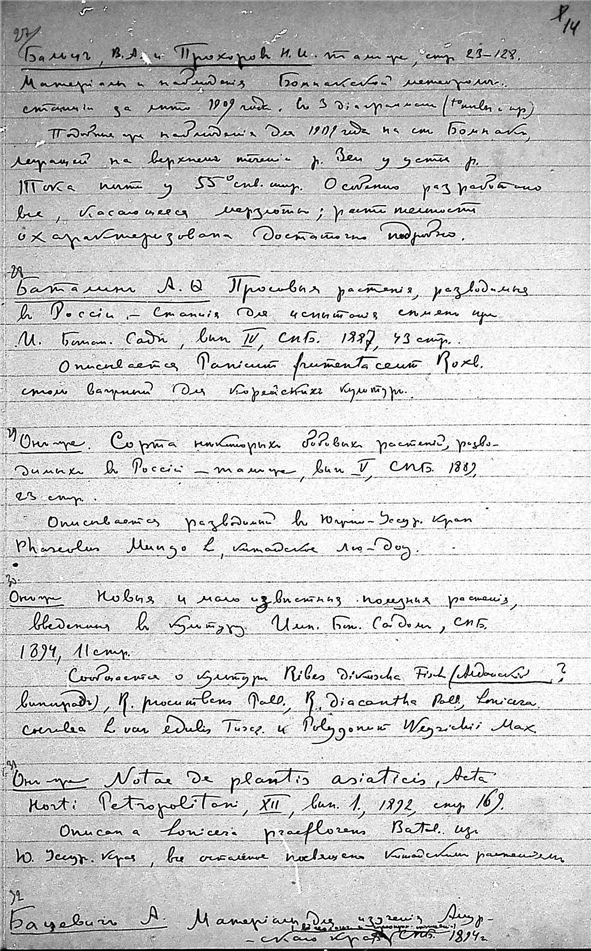 27
14
Бальц, В.А. и Прохоров Н.И. там же, стр. 23–128.
Матеріалы и наблюденія Бомнакской метеоролог.
станціи за лето 1909 года. въ 3 діаграммами
Подобные же наблюденія для 1909 года на ст. Бомнакъ,
лежащей на верхнемъ теченіи р. Зеи у устья р.
Тока почти у 55° сев. шир. Особенно разработано
все, касающееся мерзлоты; растительность
охарактеризована достаточно подробно.
28
Баталинъ А. Ѳ Просовыя растенія, разводимыя
въ Россіи. – Станція для испытанія семянъ при
И. Ботан. Саде, вып IV, СПБ. 1887, 43 стр.
Описывается Panicum frumentaceum Roxb.
столь важный для корейскихъ культуръ.
29 Онъ-же. Сорта некоторыхъ бобовыхъ растеній, разво-
димыхъ въ Россіи – тамже, вып V, СПБ. 1889,
23 стр.
Описывается разводимый въ Южно-Уссур. крае
Phaseolus Mungo L, китайское лю-доу.
30.
Онъ-же Новыя и мало известныя полезныя растенія,
введенныя въ культуру Имп. Бот. Садомъ, СПБ.
1894, 11 стр.
Сообщается о культуре Ribes Dikuscha Fisch (Алданскій ?
виноградъ), R. procumbens Pall., R. diacantha Pall, Lonicera
coerulea L var edulis Turcz. и Polygonum Weyrichii Max
31
Онъ-же Notae de plantis asiaticis, Acta
Horti Petropolitani, XII, вып. 1, 1892, стр 169.
Описана Lonicera praeflorens Batal. изъ
Ю. Уссур. края, все остальное посвящено китайскимъ растеніямъ
32
Бацевичъ А. Матеріалы для изученія Амур-
скаго края СПБ 1894г.